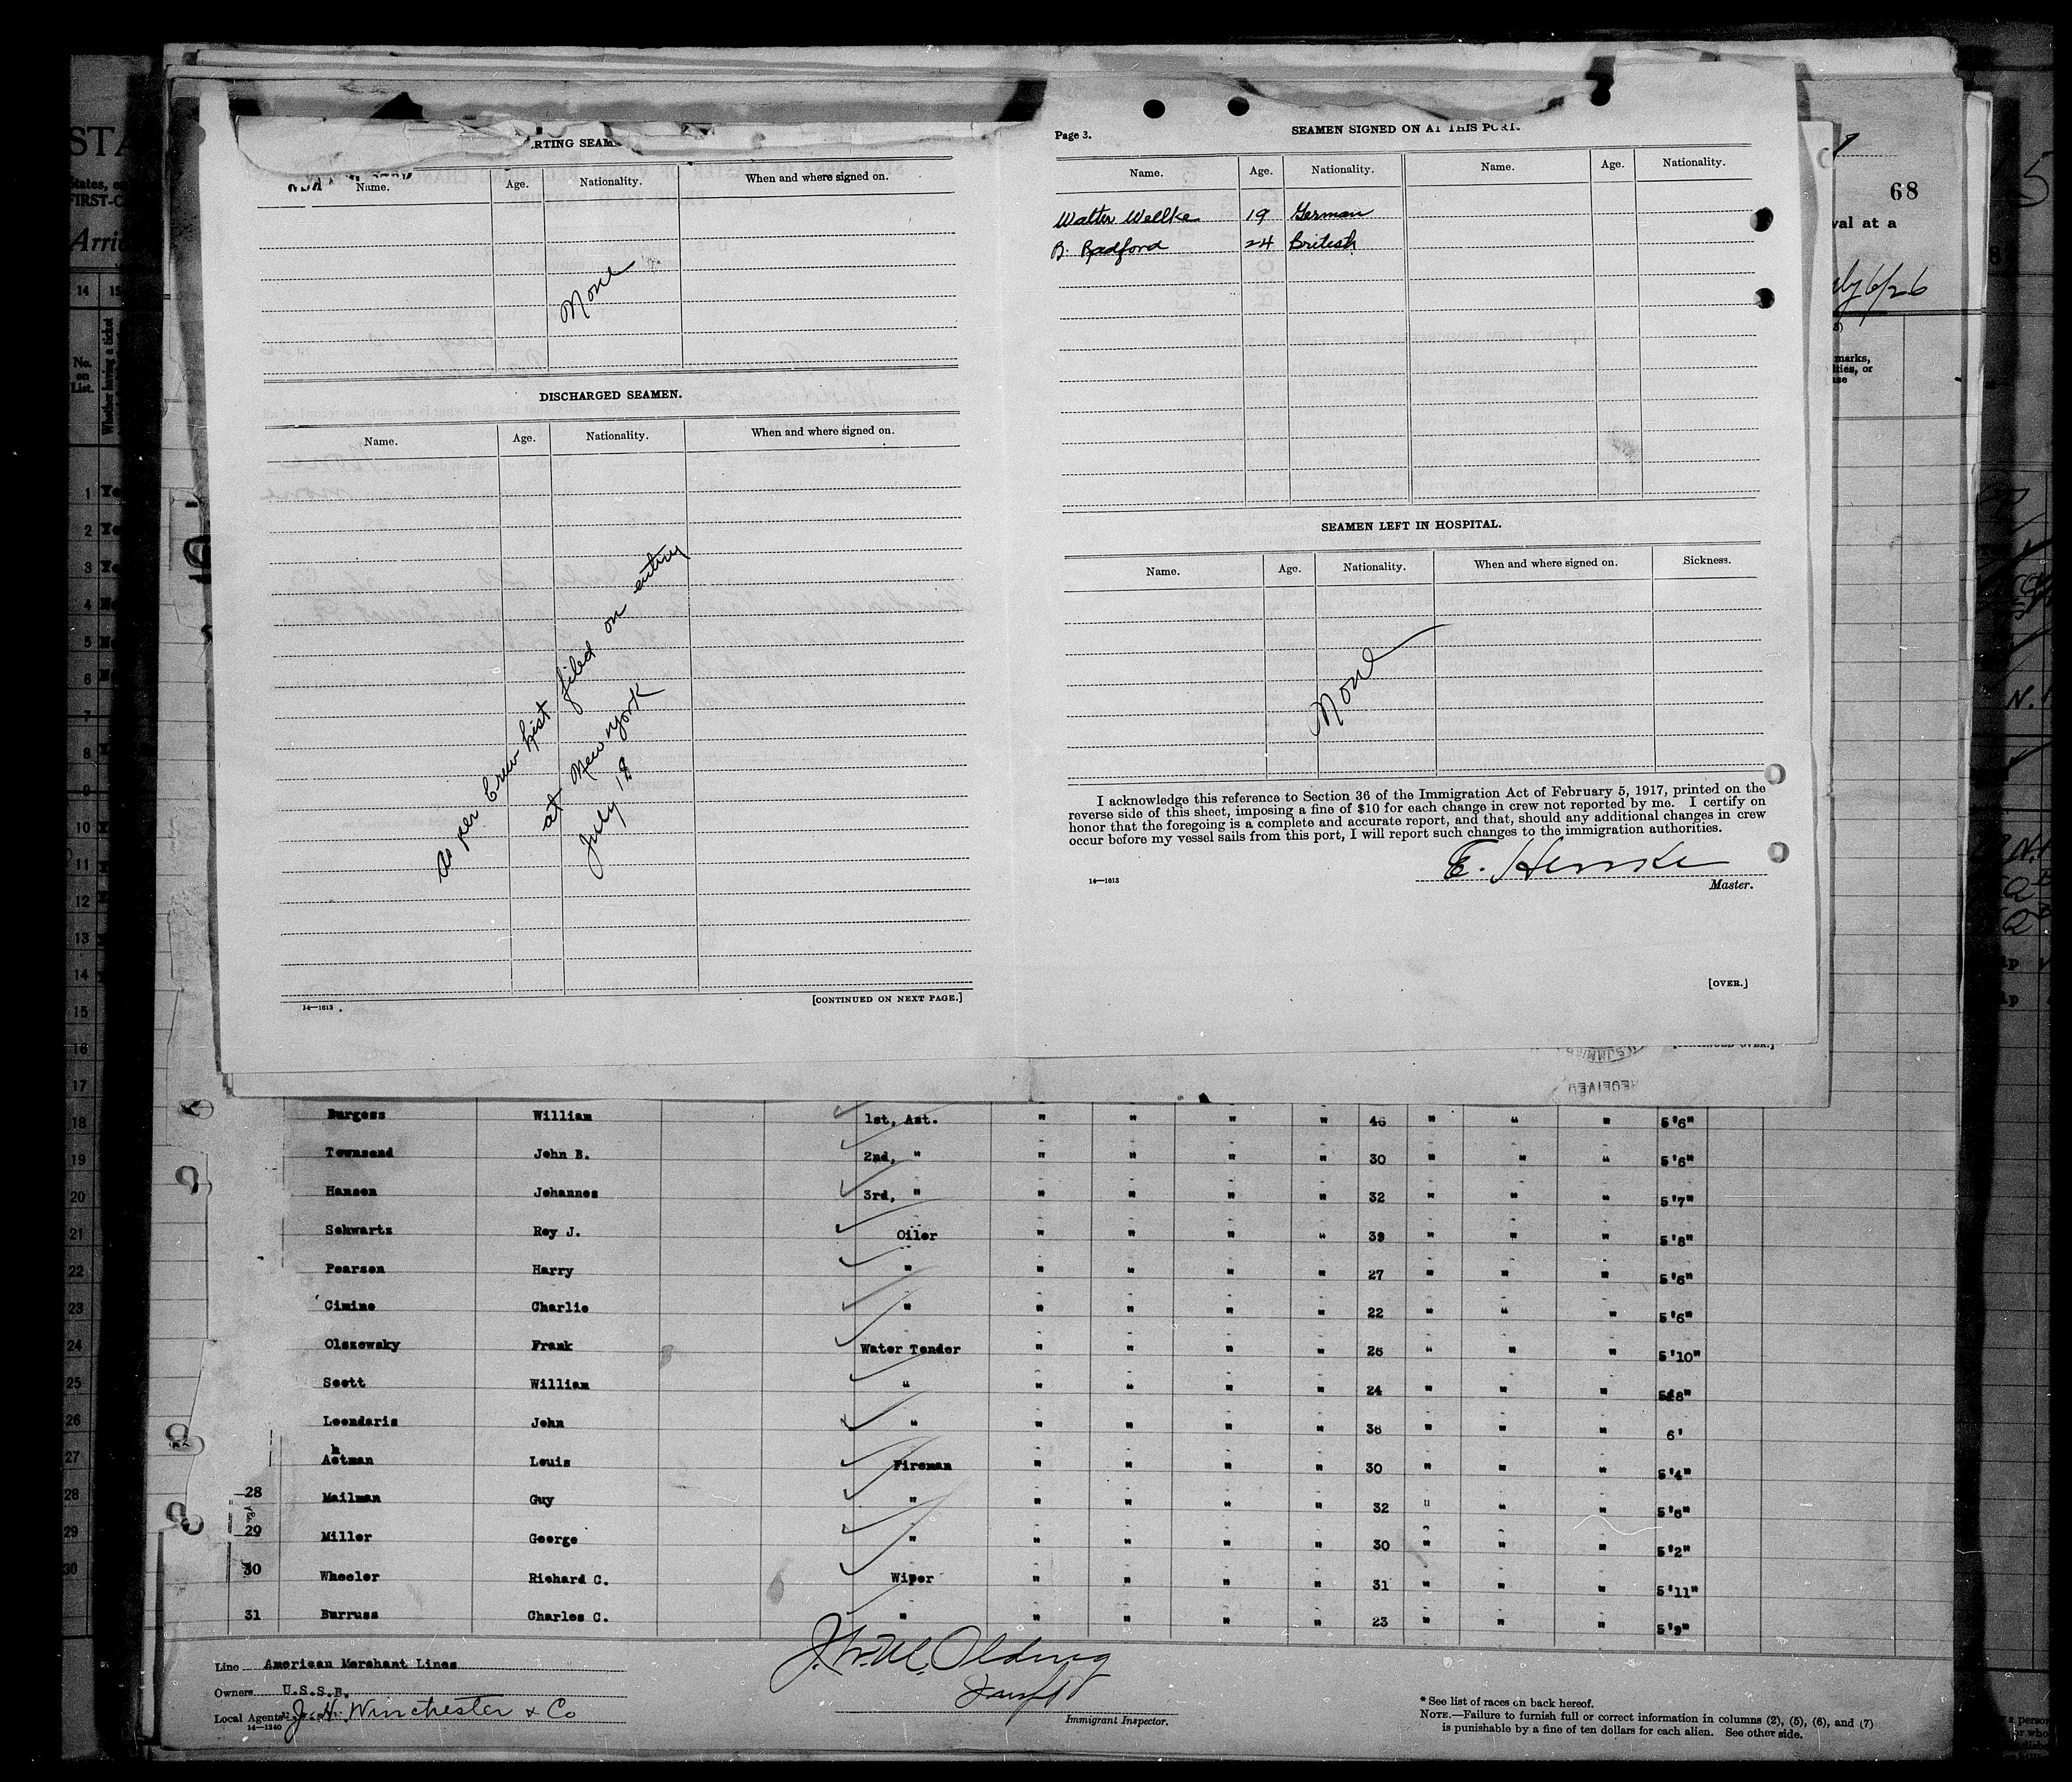 RTING SEAM
Name. Age. Nationality. When and where signed on.
None
DISCHARGED SEAMEN.
Name. Age. Nationality. When and where signed on.
as per Crew List filed on entry
at New York
July 18
14—1613
[CONTINUED ON NEXT PAGE.]
Page 3.
SEAMEN SIGNED ON AT THIS PORT.
Name. Age. Nationality. Name. Age. Nationality.
Walter Wellke 19 German
B. Radford 24 British
SEAMEN LEFT IN HOSPITAL.
Name. Age. Nationality. When and where signed on. Sickness.
None
I acknowledge this reference to Section 36 of the Immigration Act of February 5, 1917, printed on the
reverse side of this sheet, imposing a fine of $10 for each change in crew not reported by me. I certify on
honor that the foregoing is a complete and accurate report, and that, should any additional changes in crew
occur before my vessel sails from this port, I will report such changes to the immigration authorities.
14—1613
Master.
[OVER.]
68
val at a
6/26
marks,
ities, or
STA
States,
FIRST-C
14 15
No. on List.
Whether having a ticket
1
2
3
4
5
6
7
8
9
10
11
12
13
14
15
16
17
18 Burgess William 1st, Ast. " " " " 46 " " " 5'6"
19 Townsend John B. 2nd, " " " " " 30 " " " 5'6"
20 Hansen Johannes 3rd, " " " " " 32 " " " 5'7"
21 Schwartz Roy J. Oiler " " " " 39 " " " 5'8"
22 Pearson Harry " " " " " 27 " " " 5'6"
23 Cimino Charlie " " " " " 22 " " " 5'6"
24 Olszewsky Frank Water Tender " " " " 26 " " " 5'10"
25 Scott William " " " " " 24 " " " 5'8"
26 Leondaris John " " " " " 38 " " " 6'
27 Ahtman Louis Fireman " " " " 30 " " " 5'4"
28 28 Mailman Guy " " " " " 32 " " " 5'6"
29 29 Miller George " " " " " 30 " " " 5'2"
30 30 Wheeler Richard C. Wiper " " " " 31 " " " 5'11"
31 Burruss Charles C. " " " " " 23 " " " 5'9"
Line American Merchant Lines
Owners U.S.S.B.
Local Agents J. H. Winchester & Co
14—1240
Immigrant Inspector.
* See list of races on back hereof.
NOTE.—Failure to furnish full or correct information in columns (2), (5), (6), and (7)
is punishable by a fine of ten dollars for each alien. See other side.